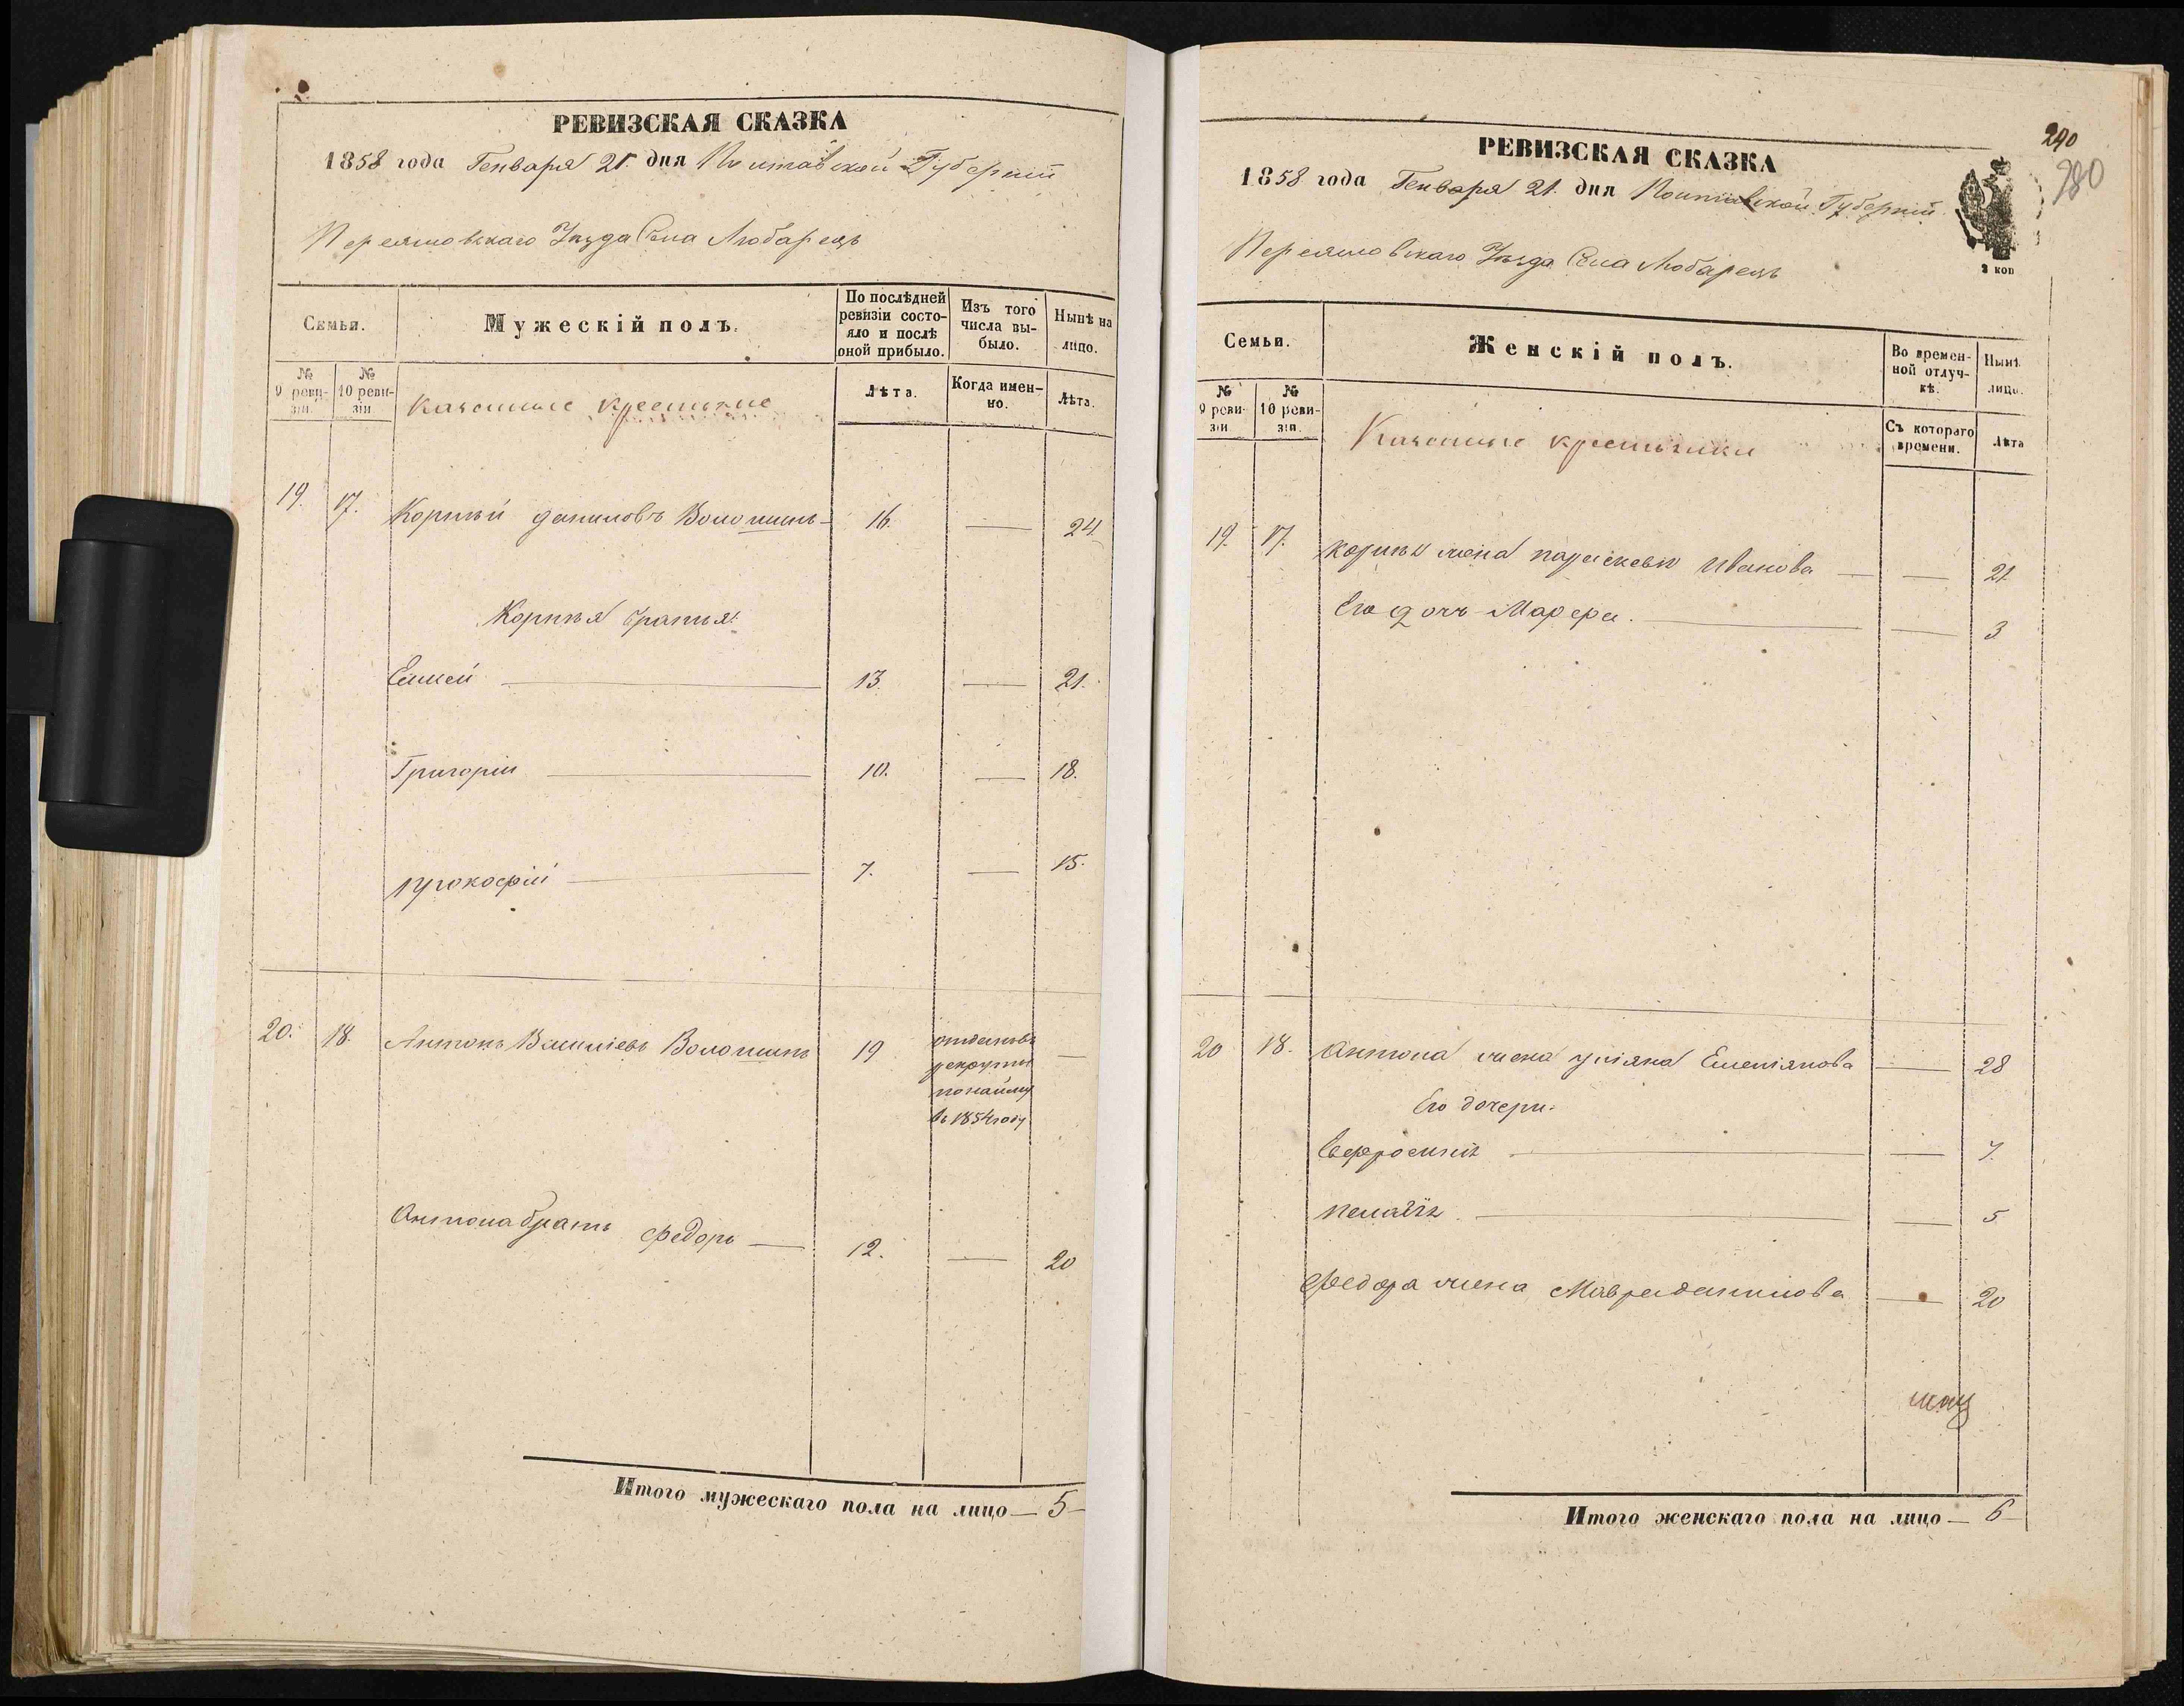 РЕВИЗСКАЯ СКАЗКА
1858 года Генваря 21. дня Полтавской Губерніи
Переяславскаго Уѣзда Села Любарецъ
Семьи.
Мужескій полъ.
По послѣдней ревизіи состояло и послѣ оной прибыло.
Изъ того числа выбыло.
Нынѣ на лицо.
№ 9 ревизіи.
№ 10 ревизіи
Казенные крестьяне
Лѣта.
Когда именно.
Лѣта.
19. 17. Корнѣй Даниловъ Волошинъ 16. — 24.
Корнѣя братья:
Елисей — 13. — 21.
Григорій — 10. — 18.
Прокофій — 7. — 15.
20. 18. Антонъ Василіевъ Волошинъ 19 —
рекруты
по найму
въ 1854 году
Антона братъ Федоръ — 12. — 20
Итого мужескаго пола на лицо — 5 —
290
280
РЕВИЗСКАЯ СКАЗКА
1858 года Генваря 21. дня Полтавской Губерніи
Переяславскаго Уѣзда Села Любарецъ
2 коп
Семьи.
Женскій полъ.
Во временной отлучкѣ.
Нынѣ лицо.
№ 9 ревизіи
№ 10 ревизіи.
Казенные крестьянки
Съ котораго времени.
Лѣта
19. 17. Корнѣя жена Параскевія Иванова — — 21
Его дочь Марфа. — — 3
20 18. Антона жена Уліяна Емеліянова — 28
Его дочери:
Евфросинія — — 7.
Пелагія — — 5
Федора жена Мавра Данилова — 20
Итого женскаго пола на лицо — 6 —